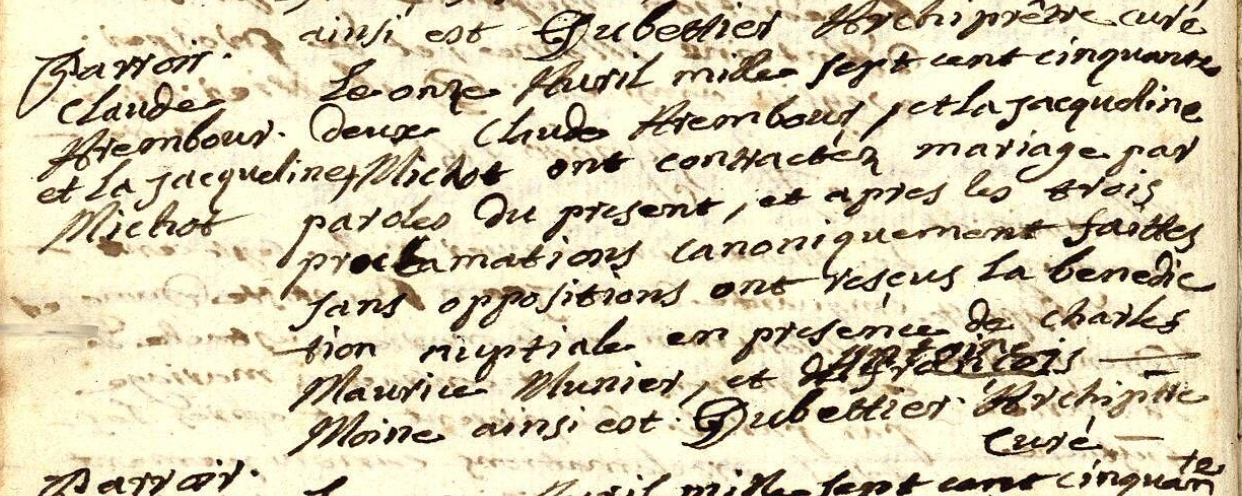 ainsi est Dubettier Archiprêtre curé
Parroir.
Claude
Arembour.
et La jacqueline
Michot
Le onze Auril mille sept cent cinquante
deux Claude Arembour, et La jacqueline
Michot ont contractéz mariage par
paroles du present, et apres les trois
proclamations canoniquement faittes
sans oppositions ont reseus La benedic
tion nuptiale en presence de charles
Maurice Munier, et Antoine
Moine ainsi est Dubettier Archiptre
Curé
Parroir.
Auril mille sept cent cinquante